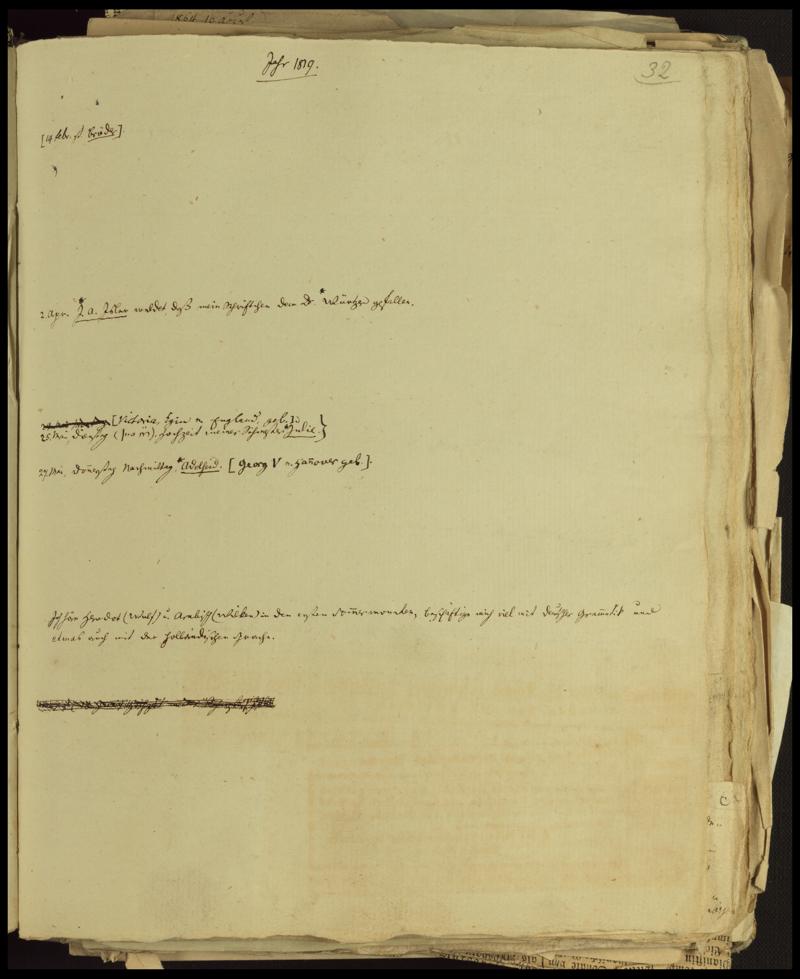 Jahr 1819.
32
[14 Febr. st Bröder].
2. Apr. J. A. Isler meldet daß mein Schriftchen dem Dr. Würtzer gefallen.
[Victoria, Kgin v. England, geb.]
25. Mai, Dienstag Hochzeit meiner Schwester Julie.}
27. Mai, Donnerstag Nachmittag, Adelheid. [Georg V v. Hannover geb.].
Ich höre Herodot (Wolf) u. Arabisch (Wilken) in den ersten Sommermonaten, beschäftige mich viel mit deutscher Grammatik und
etwas auch mit der holländischen Sprache.